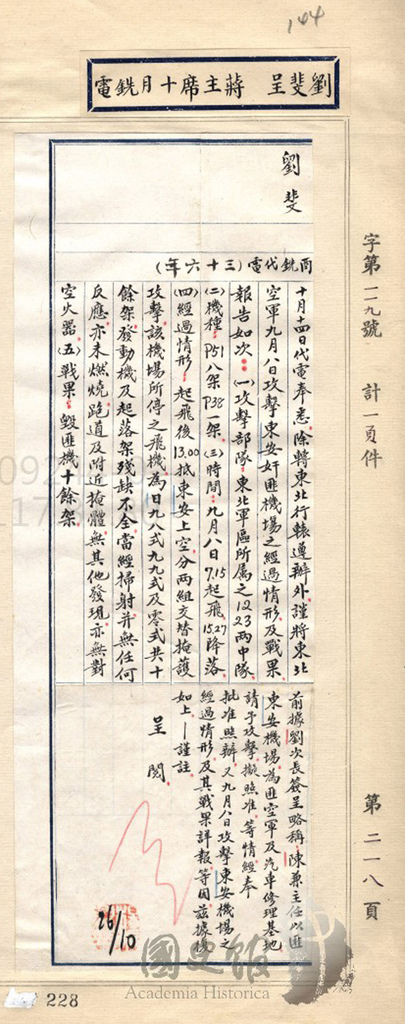 144
劉斐呈 蔣主席十月銑電
字第一一九號 計一頁件
第二一八頁
劉斐
酉銑代電(三十六年)
十月十四日代電奉悉。除將東北行轅遵辦外,謹將東北
空軍九月八日攻擊東安奸匪機場之經過情形及戰果
報告如次:(一)攻擊部隊:東北軍區所屬之12.23兩中隊
(二)機種:P51八架P38一架。(三)時間:九月八日7.15起飛15.27降落
(四)經過情形:起飛後13.00抵東安上空,分兩組交替掩護
攻擊,該機場所停之飛機為日九八式九九式及零式共十
餘架,發動機及起落架殘缺不全,當經掃射並無任何
反應,亦未燃燒,跑道及附近掩體無其他發現,亦無對
空火器。(五)戰果:毀匪機十餘架
前據劉次長簽呈略稱:陳兼主任以匪
東安機場為匪空軍及汽車修理基地
請予攻擊,擬照准,等情經奉
批准照辦。又九月八日攻擊東安機場之
經過情形及其戰果詳報等因茲據復
如上—謹註
呈閱
26/10
國史館
Academia Historica
228